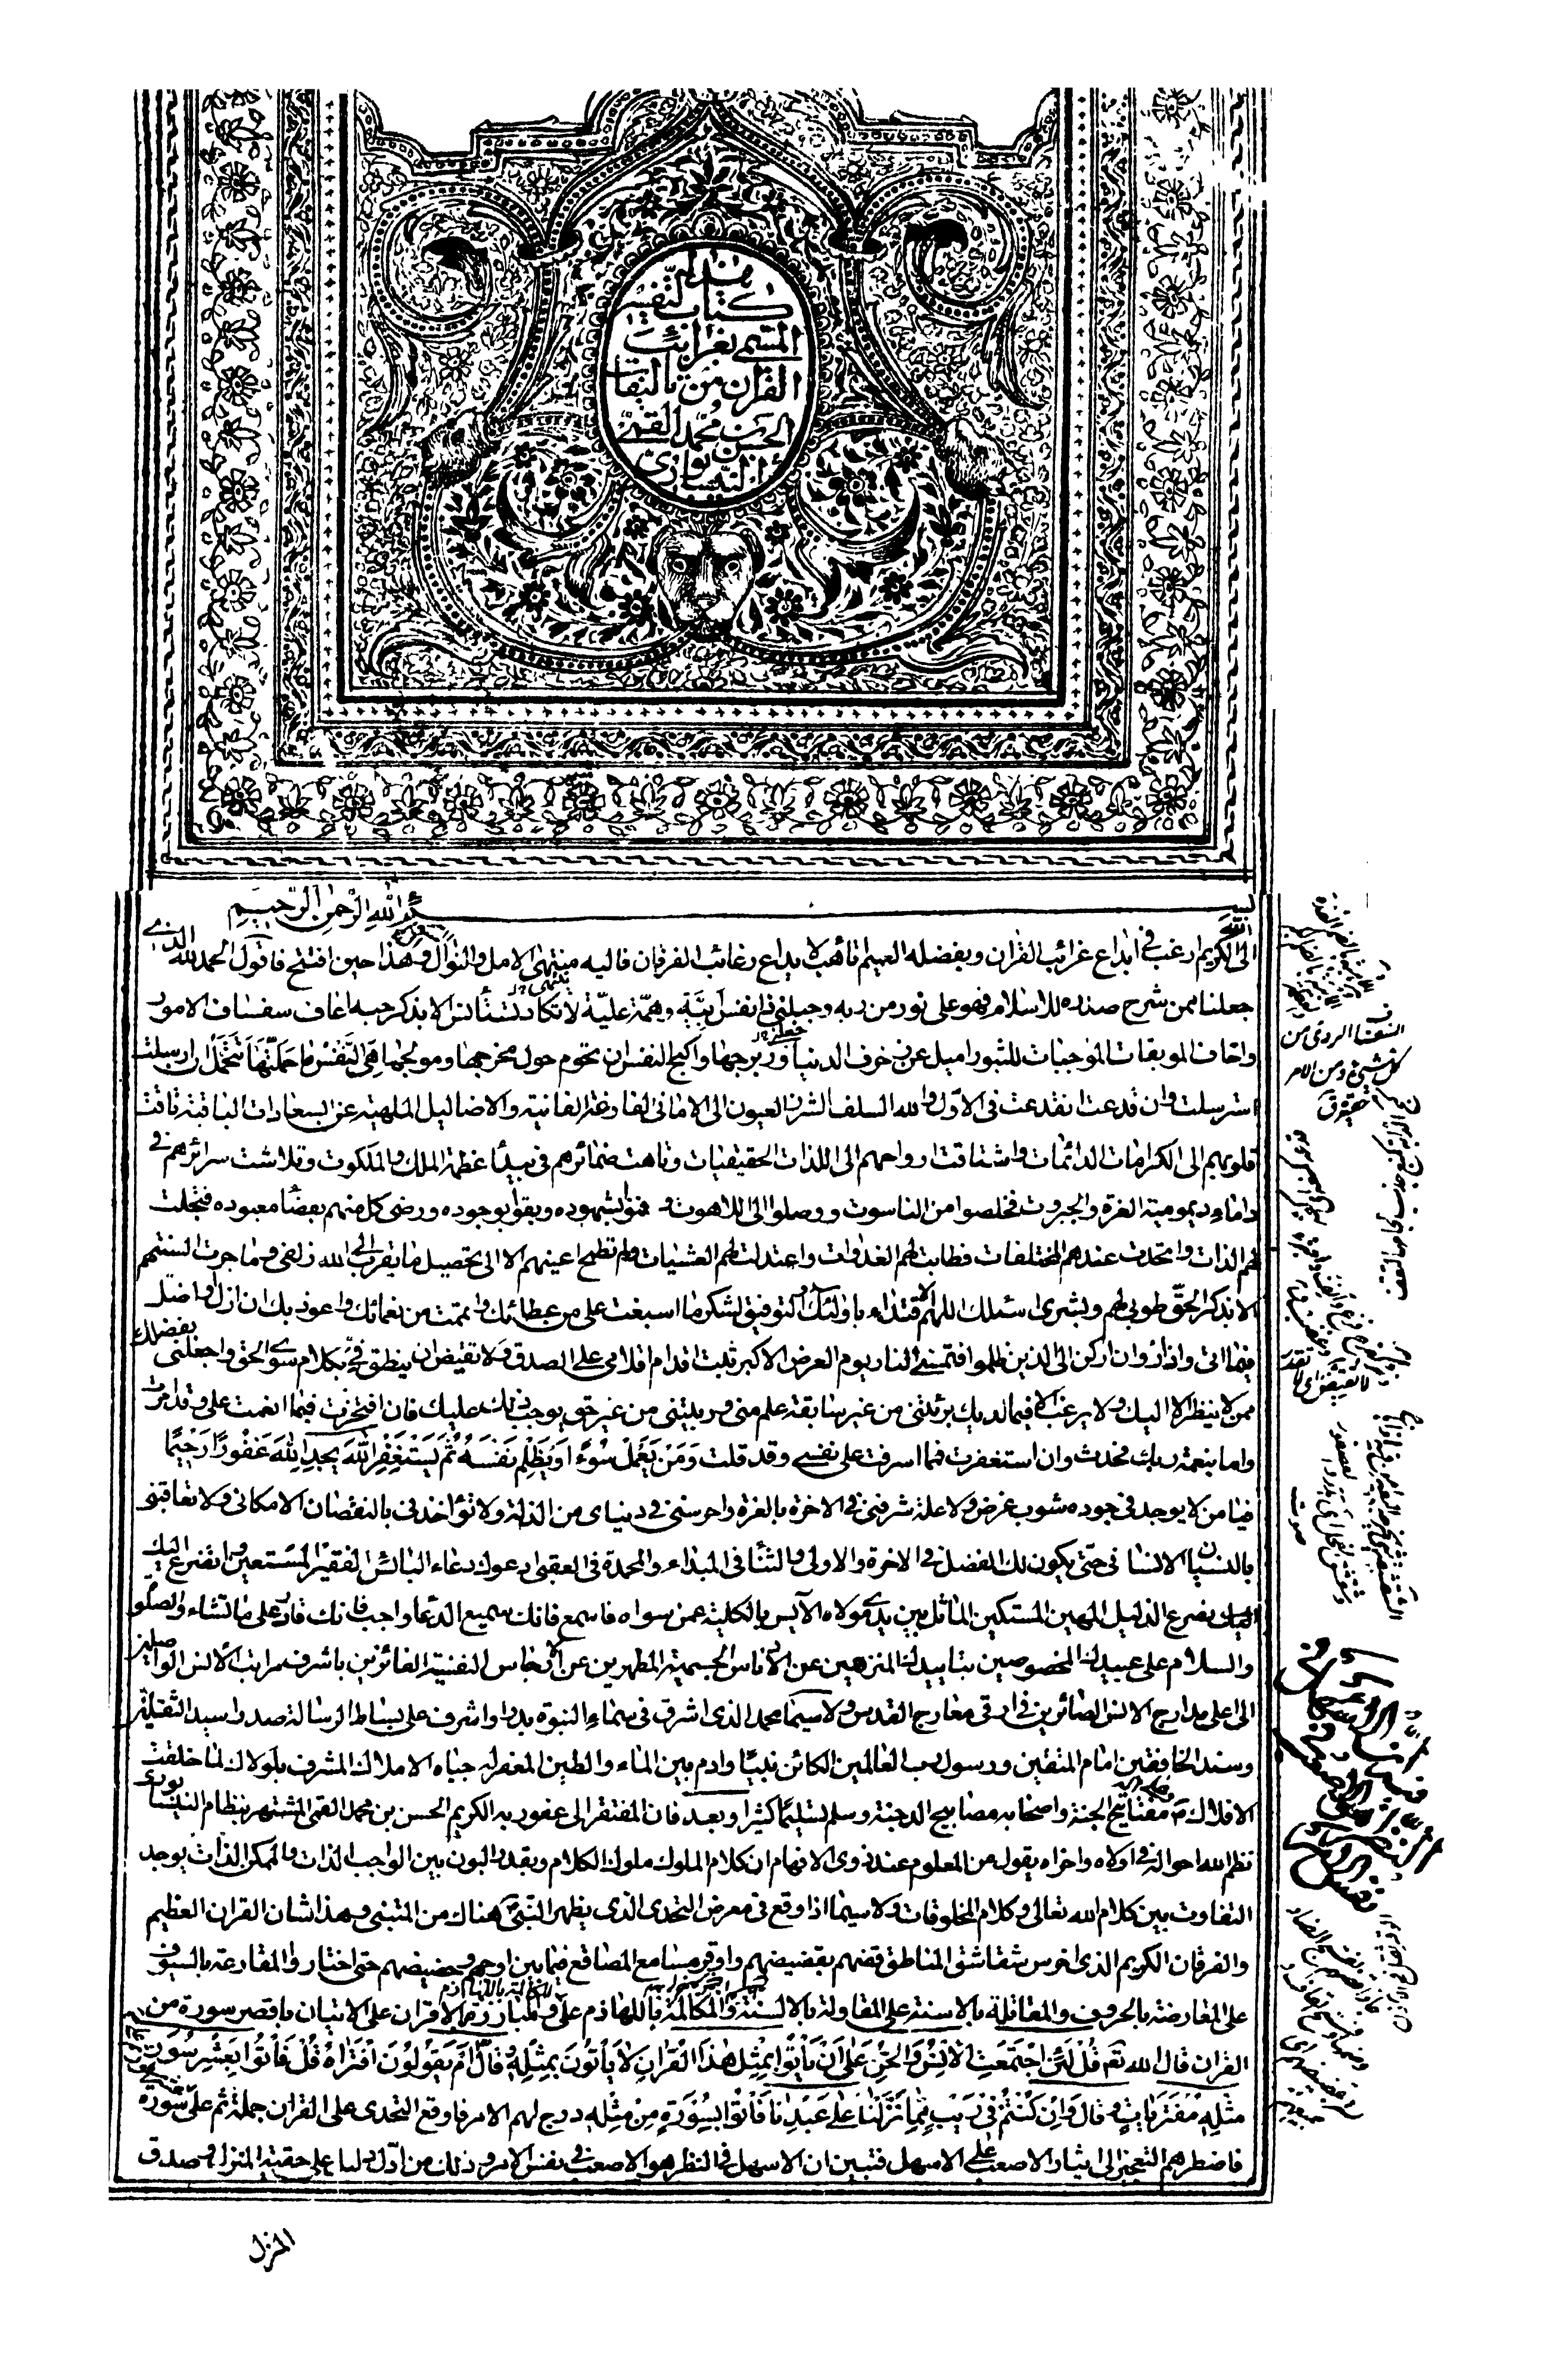 هذا
كتاب التفسير
المسمى بغرائب
القران من تاليفات
الحسن بن محمد القمي
النيسابوري
بسم الله الرحمن الرحيم
الى الله الكريم ارغب في ابداع غرائب القران وبفضله العميم تأهب لايداع رغائب الفرقان فاليه منتهى الامل والنوال وهذا حين افتتح فاقول الحمد لله الذي
جعلنا ممن شرح صدره للاسلام فهو على نور من ربه وجبلني ذا نفس ابية وهمة علية لا تكاد تستأنس الا بذكر حبه اعاف سفساف الامور
واخاف الموبقات الموجبات للثبور اميل عن زخرف الدنيا وزبرجها واكبح النفس ان تحوم حول مخرجها ومولجها هي النفس ما حملتها تتحمل ان ارسلت
استرسلت وان قدعت انقدعت في الاول ولله السلف الشرر العيون الى الاماني الفارغة الفانية والاضاليل الملهية عن السعادات الباقية تاقت
قلوبهم الى الكرامات الدائمات واشتاقت ارواحهم الى اللذات الحقيقيات وتاهت ضمائرهم في بيداء عظمة الملك والملكوت وتلاشت سرائرهم في
داماء ديمومية العزة والجبروت فخلصوا من الناسوت ووصلوا الى اللاهوت وفنوا بشهوده وبقوا بوجوده ورضي كل منهم بقضاء معبوده فتجلت
لهم الذات واتحدت عندهم المختلفات فطابت لهم الغدوات واعتدلت لهم العشيات ولم تطمح اعينهم الا الى تحصيل ما يقرب الى الله زلفى وما جرت السنتهم
الا بذكر الحق طوبى لهم وبشرى اسئلك اللهم الاقتداء باولئك والتوفيق لشكر ما اسبغت علي من عطائك واتممت من نعمائك واعوذ بك ان ازل واضل
فيما اتى واذر وان اركن الى الذين ظلموا فتمسني النار يوم العرض الاكبر ثبت اقدام اقلامي على الصدق ولا تقيض ان ينطق فمي بكلام سوى الحق واجعلني بفضلك
ممن لا ينظر الا اليك ولا يرغب الا فيما لديك برئتني من غير سابقة علم مني وربيتني من غير حق يوجب ذلك عليك فان افتخرت فبما انعمت علي وقد امرت
واما بنعمة ربك فحدث وان استغفرت فما اسرفت على نفسي وقد قلت ومن يعمل سوءا او يظلم نفسه ثم يستغفر الله يجد الله غفورا رحيما
فيا من لا يوجد في جوده شوب غرض ولا علة شرفني في الاخرة بالعزة واحرسني في دنياي من الذلة ولا تؤاخذني بالنقصان الامكاني ولا تعاقبني
بالنسيان الانساني حتى يكون لك الفضل في الاخرة والاولى والثناء في المبداء والمحمدة في العقبى ادعوك دعاء البائس الفقير المستعين واتضرع اليك
اليك تضرع الذليل المهين المستكين الماثل بين يدي مولاه الآيس بالكلية عمن سواه فاسمع فانك سميع الدعا واجب فانك قادر على ما تشاء والصلوة
والسلام على عبيدك المخصوصين بتاييدك المنزهين عن الادناس الجسمية المطهرين عن الارجاس النفسية الفائزين باشرف مراتب الانس الواصلين
الى اعلى مدارج الانس الصائرين في ارقى معارج القدس ولا سيما محمد الذي اشرق في سماء النبوة بدرا واشرف على بساط الرسالة صدرا سيد الثقلين
وسند الخافقين امام المتقين ورسول رب العالمين الكائن نبيا وادم بين الماء والطين المعفر له جباه الاملاك المشرف بلولاك لما خلقت
الافلاك وعلى اله مفاتيح الجنة واصحابه مصابيح الدجنة وسلم تسليما كثيرا وبعد فان المفتقر الى عفو ربه الكريم الحسن بن محمد القمي المشتهر بنظام النيسابوري
نظم الله احواله في اولاه واخراه يقول من المعلوم عند ذوي الافهام ان كلام الملوك ملوك الكلام وبقدر البون بين الواجب الذات والممكن الذات يوجد
التفاوت بين كلام الله تعالى وكلام المخلوقات ولا سيما اذا وقع في معرض التحدي الذي يظهر النبي هناك من المتنبي وهذا شان القران العظيم
والفرقان الكريم الذي اخرس شقاشق المناطق قضهم بقضيضهم واوقر مسامع المصاقع فيما بين اوجهم وحضيضهم حتى اختاروا المقارعة بالسيوف
على المعارضة بالحروف والمقاتلة بالاسنة على المقاولة بالالسنة والمكالمة باللهاذم على والمبارزة الاقران على الاتيان باقصر سورة من
القران قال الله تعم قل لئن اجتمعت الانس والجن على ان يأتوا بمثل هذا القران لا يأتون بمثله وقال ام يقولون افتراه قل فأتوا بعشر سور
مثله مفتريات وقال وان كنتم في ريب مما نزلنا على عبدنا فأتوا بسورة من مثله درج لهم الامر فاوقع التحدي على القران جملة ثم على سورة
فاضطرهم التعجيز الى ايثار الاصعب على الاسهل فتبين ان الاسهل في النظر هو الاصعب في نفس الامر وذلك من ادل دليل على حقية المنزل وصدق
المنزل
السفساف الردى من
كل شيء ومن الامر
حقيرة